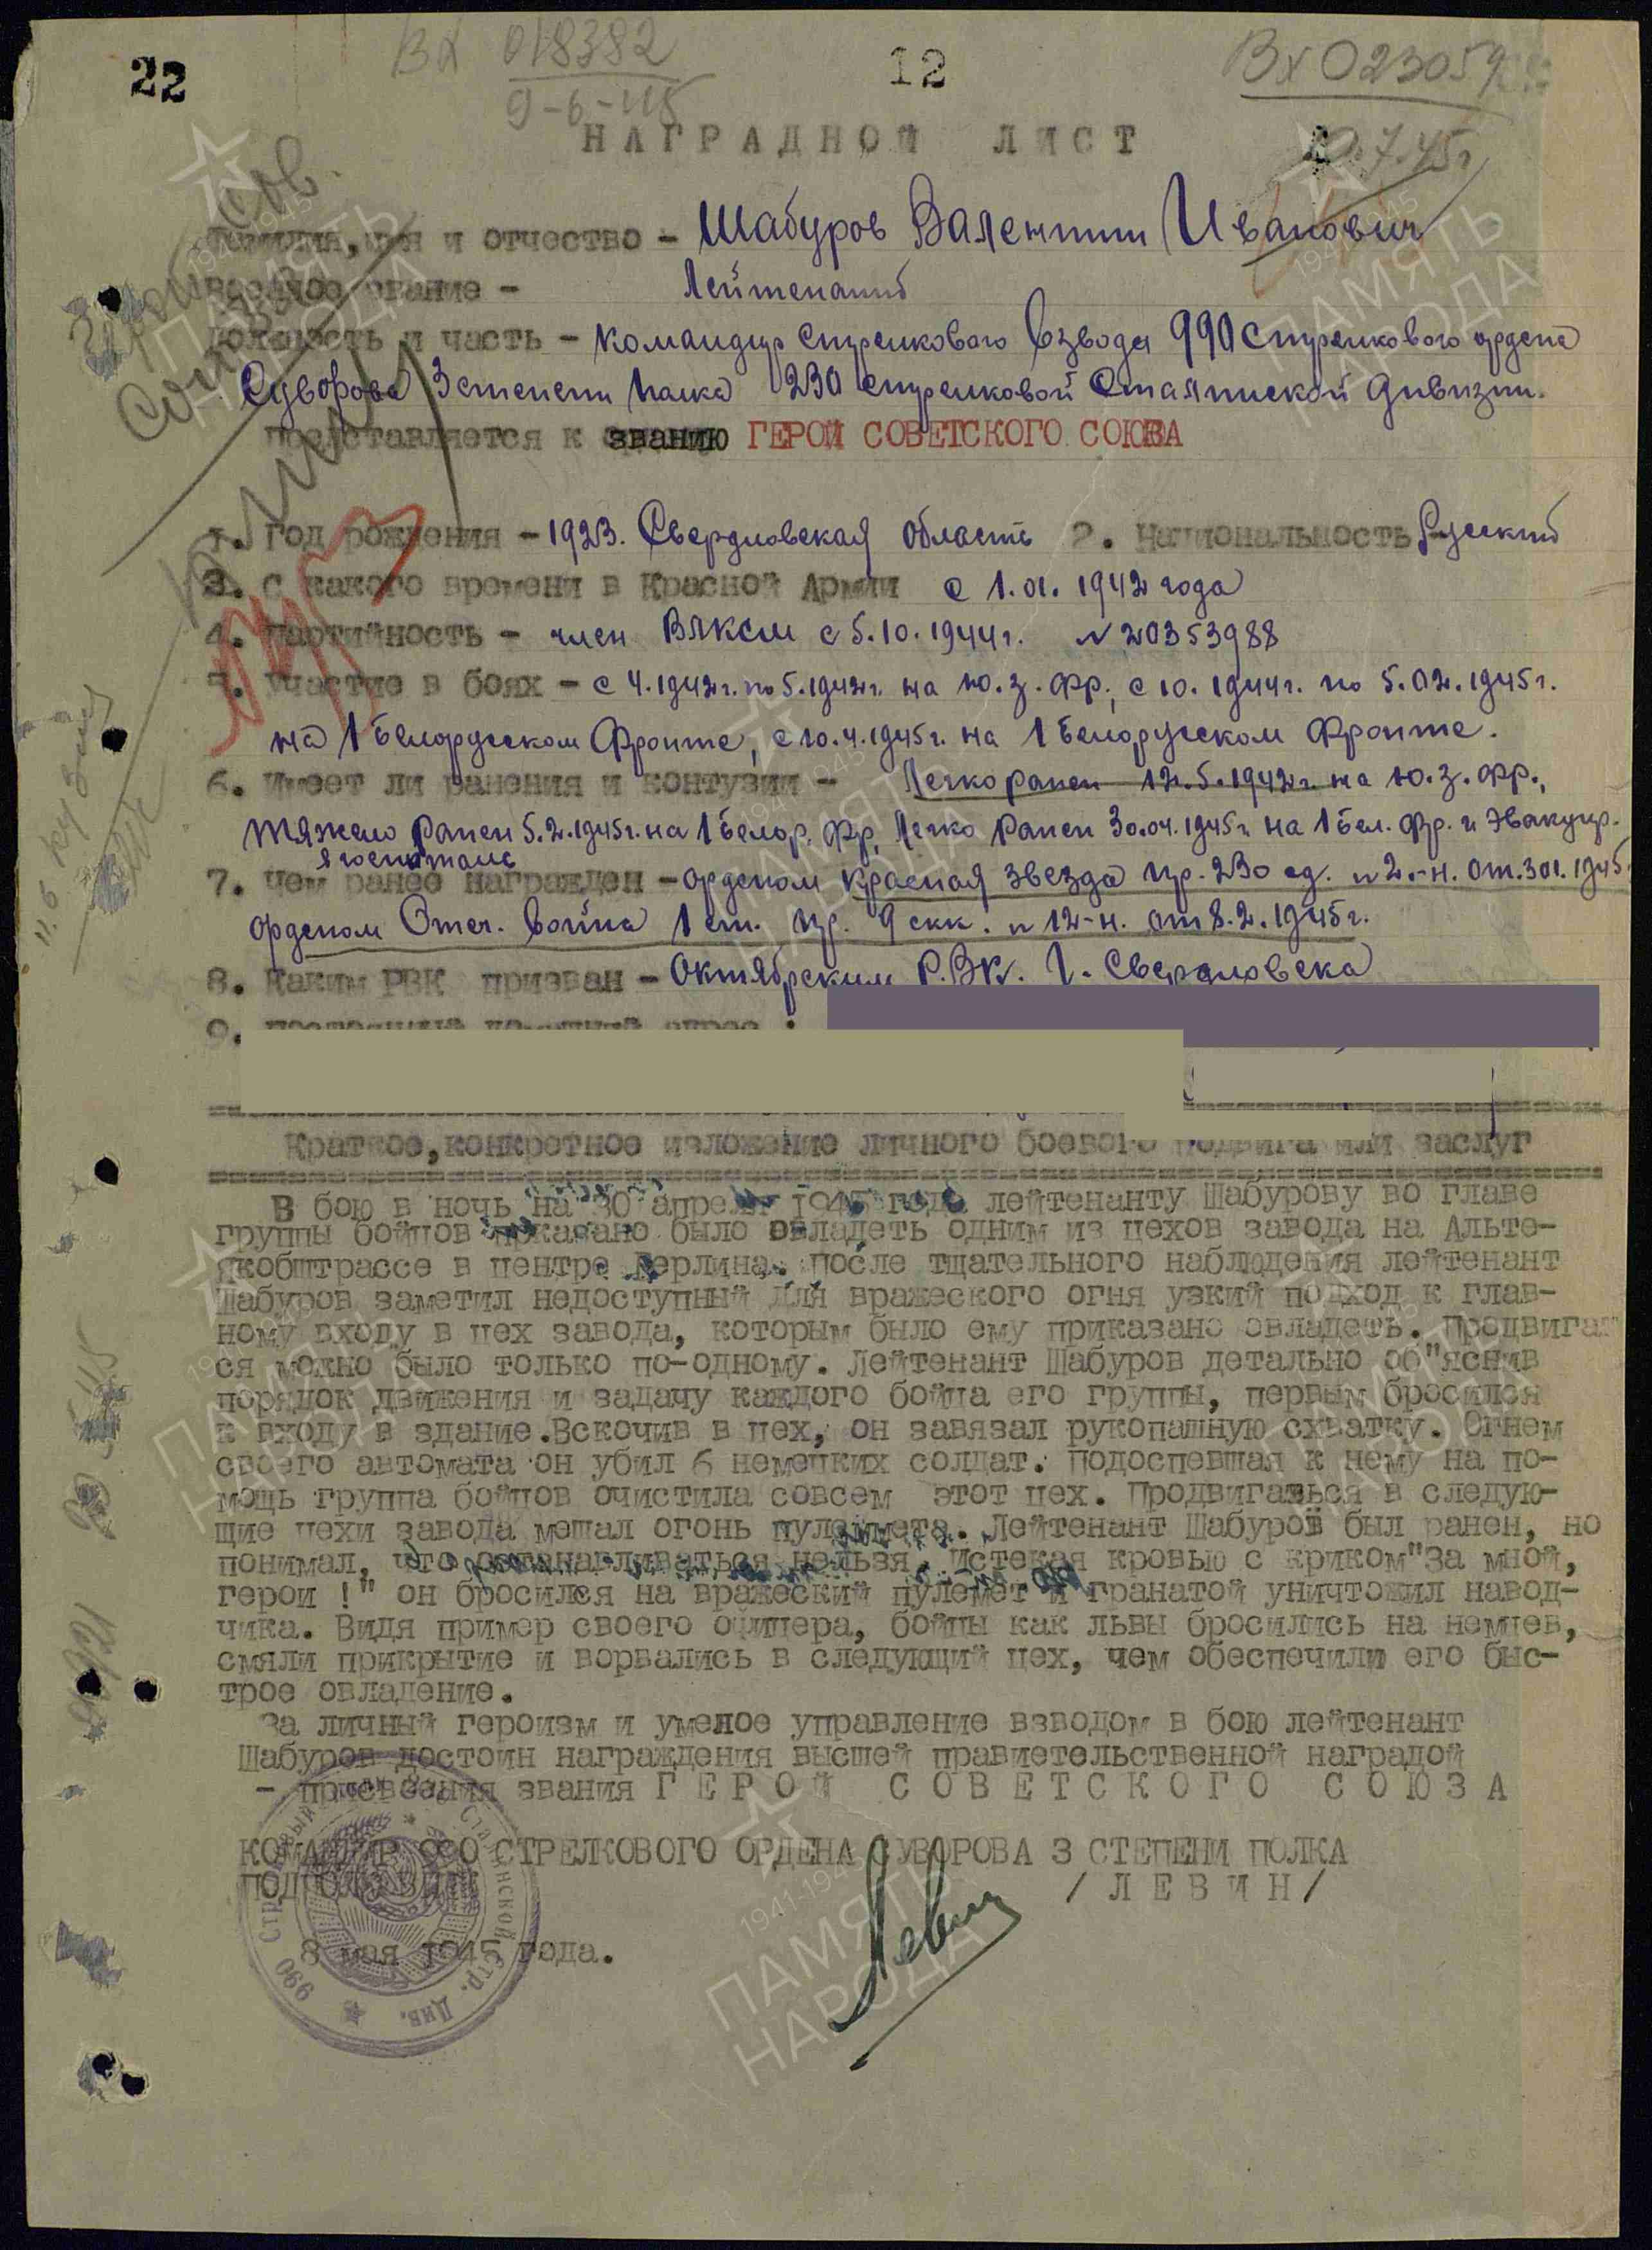 22
Вх 018382
9-6-45
12
Вх 023059
7.45г
НАГРАДНОЙ ЛИСТ
Фамилия, имя и отчество - Шабуров Валентин Иванович
Военное звание - Лейтенант
должность и часть - командир стрелкового взвода 990 стрелкового ордена
Суворова 3 степени полка 230 стрелковой Сталинской дивизии.
представляется к званию ГЕРОЙ СОВЕТСКОГО СОЮЗА
1. Год рождения - 1923. Свердловская область 2. Национальность Русский
3. С какого времени в Красной Армии с 1.01.1942 года
4. Партийность - член ВЛКСМ с 5.10.1944г. N 20353988
5. Участие в боях - с 4.1942г. по 5.1942г. на Ю.З.Фр., с 10.1944г. по 5.02.1945г.
на 1 Белорусском Фронте, с 10.4.1945г. на 1 Белорусском Фронте.
6. Имеет ли ранения и контузии - Легко ранен 12.5.1942г. на Ю.З.Фр.,
тяжело ранен 5.2.1945г. на 1 Белор. Фр, Легко ранен 30.04.1945г на 1 Бел. Фр. и эвакуир.
в госпиталь
7. Чем ранее награжден - орденом Красная звезда пр. 230 сд. N 2-н. от 3.01.1945
орденом Отеч. война 1 ст. пр. 9 скк. N 12-н. от 8.2.1945г.
8. Каким РВК призван - Октябрьским Р.В.К. г. Свердловска
9. постоянный домашний адрес:
Краткое, конкретное изложение личного боевого подвига или заслуг
В бою в ночь на 30 апреля 1945 года лейтенанту Шабурову во главе
группы бойцов приказано было овладеть одним из цехов завода на Альте-
якобштрассе в центре Берлина. После тщательного наблюдения лейтенант
Шабуров заметил недоступный для вражеского огня узкий подход к глав-
ному входу в цех завода, которым было ему приказано овладеть. Продвигат
ся можно было только по-одному. Лейтенант Шабуров детально об"яснив
порядок движения и задачу каждого бойца его группы, первым бросился
к входу в здание.Вскочив в цех, он завязал рукопашную схватку. Огнем
своего автомата он убил 6 немецких солдат. Подоспевшая к нему на по-
мощь группа бойцов очистила совсем этот цех. Продвигаться в следую-
щие цехи завода мешал огонь пулемета. Лейтенант Шабуров был ранен, но
понимал, что останавливаться нельзя. Истекая кровью с криком"За мной,
герои !" он бросился на вражеский пулемет и гранатой уничтожил навод-
чика. Видя пример своего офицера, бойцы как львы бросились на немцев,
смяли прикрытие и ворвались в следующий цех, чем обеспечили его быс-
трое овладение.
За личный героизм и умелое управление взводом в бою лейтенант
Шабуров достоин награждения высшей правиетельственной наградой
- присвоения звания ГЕРОЙ СОВЕТСКОГО СОЮЗА
КОМАНДИР 990 СТРЕЛКОВОГО ОРДЕНА СУВОРОВА 3 СТЕПЕНИ ПОЛКА
ПОДПОЛКОВНИК /ЛЕВИН/
Левин
8 мая 1945 года.
990 Стрелковый Сталинской Стр. Див.
ПАМЯТЬ НАРОДА
1941-1945